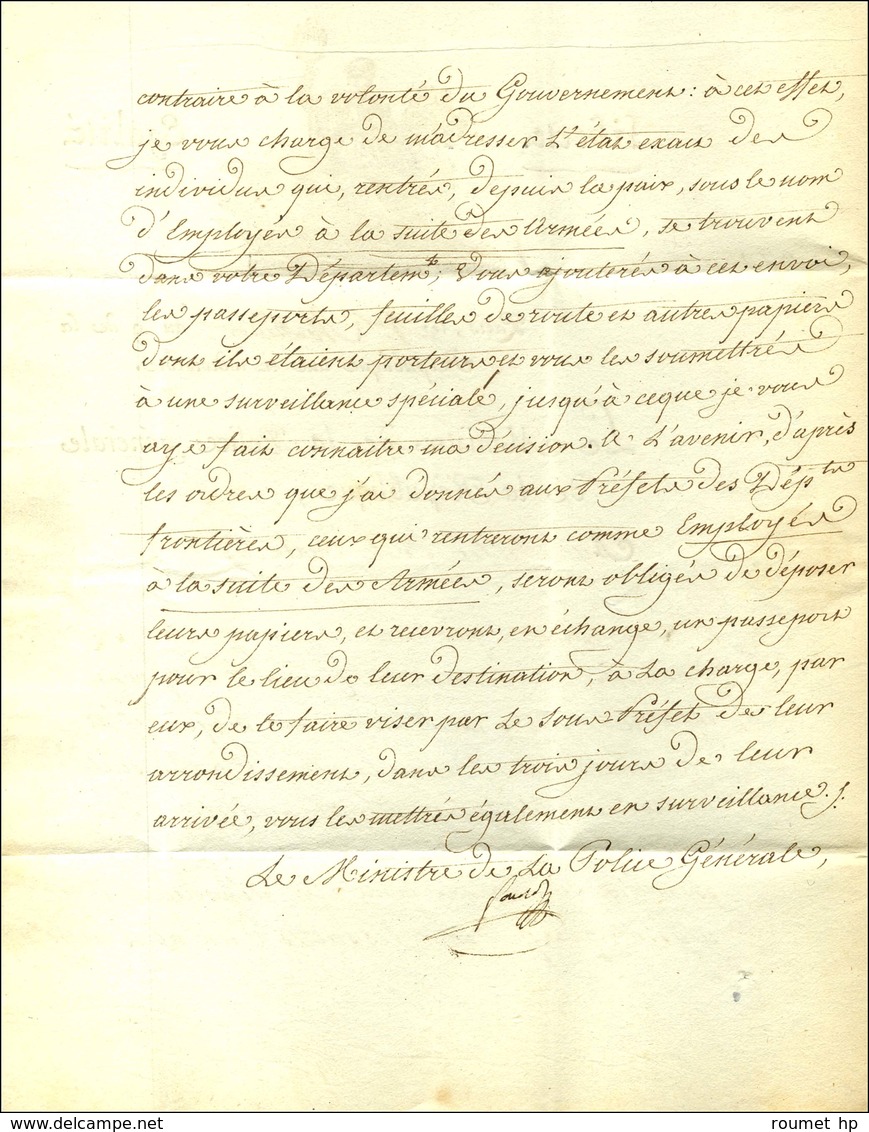 contraire à la volonté du Gouvernement : à cet effet,
je vous charge de m'adresser L'état exact des
individus qui, rentrés, depuis la paix, sous le nom
d'Employés à la suite des Armées, se trouvent
dans votre Départem.t; Vous ajouterés à cet envoi,
les passeports, feuilles de route et autres papiers
dont ils étaient porteurs et vous les soumettrés
à une surveillance spéciale, jusqu'à ceque je vous
aye fait connaitre ma décision. A L'avenir, d'après
les ordres que j'ai donnés aux Préfets des Dép.ts
frontières, ceux qui rentreront comme Employés
à la suite des Armées, seront obligés de déposer
leurs papiers, et recevront, en échange, un passeport
pour le lieu de leur destination, à La charge, par
eux, de le faire viser par Le sous-Préfet de leur
arrondissement, dans les trois jours de leur
arrivée, vous les mettrés également en surveillance. /.
Le Ministre de La Police Générale,
Fouché
roumet hp